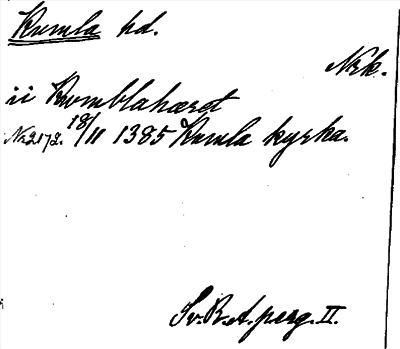 Kumla hd.
Nrk.
ii Kumblahæret
Nr2172. 18/11 1385 Kumla kyrka.
Sv.R.A.perg.II.